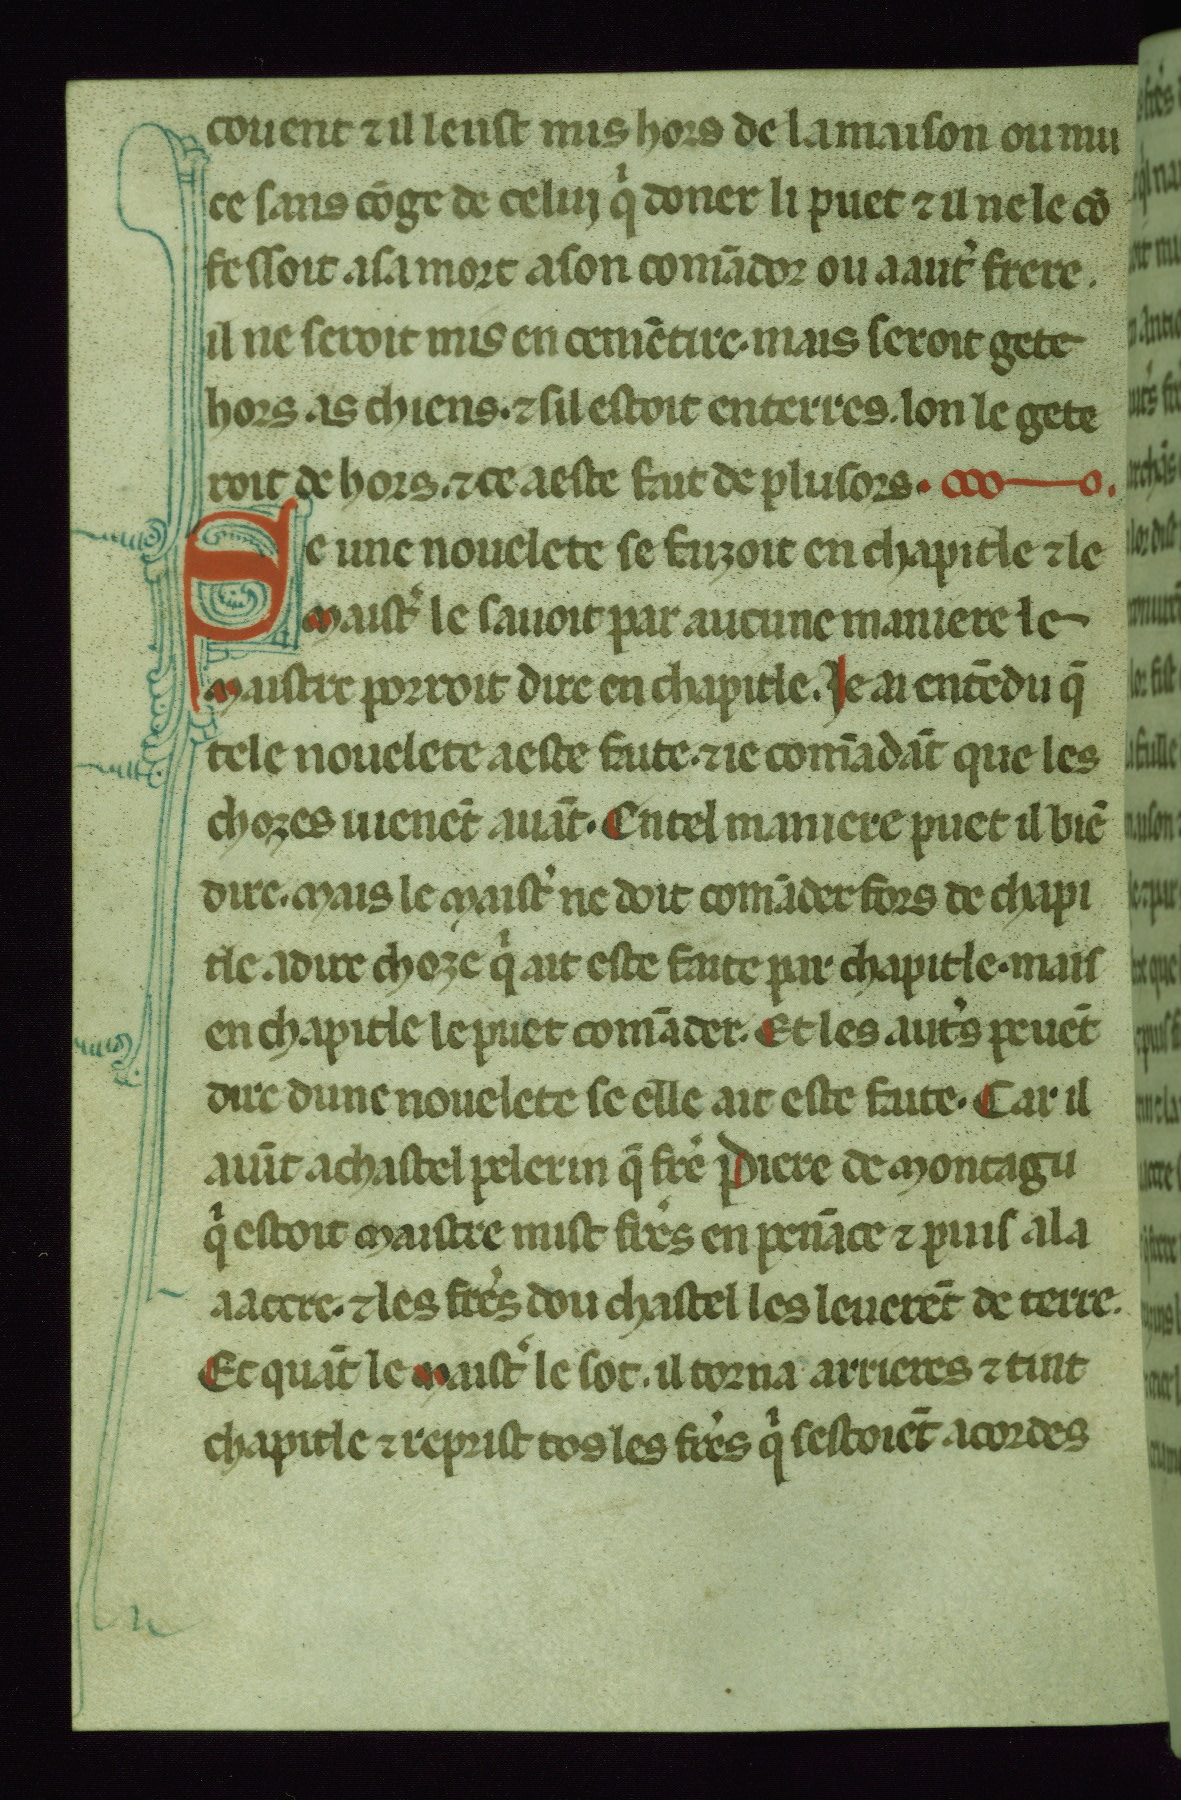 couent ⁊ il leust mis hors de la maison ou mu
ce sans cōge de celuj qͥ doner li puet ⁊ il ne le cō
fessoit a sa mort a son comādor ou a autˀ frere.
il ne seroit mis en cemētire. mais seroit gete
hors as chiens. ⁊ sil estoit enterres. lon le gete
roit de hors. ⁊ ce a este fait de plusors.
Se une nouelete se faizoit en chapitle ⁊ le
maistˀ le sauoit par aucune maniere le
maistre porroit dire en chapitle. Je ai entēdu q̄
tele nouelete a este faite. ⁊ ie comādāt que les
chozes uienēt auāt. En tel maniere puet il biē
dire. mais le maistˀ ne doit comāder fors de chapi
tle. a dire choze qͥ ait este faite par chapitle. mais
en chapitle le puet comāder. Et les autˀs peuēt
dire dune nouelete se elle ait este faite. Car il
auīt a chastel pelerin q̄ freˀ Piere de montagu
qͥ estoit maistre mist freˀs en penāce ⁊ puis a la
a acre. ⁊ les freˀs dou chastel les leuerēt de terre.
Et quāt le maistˀ le sot. il torna arrieres ⁊ tint
chapitle ⁊ reprist tos les freˀs qͥ sestoiēt acordes